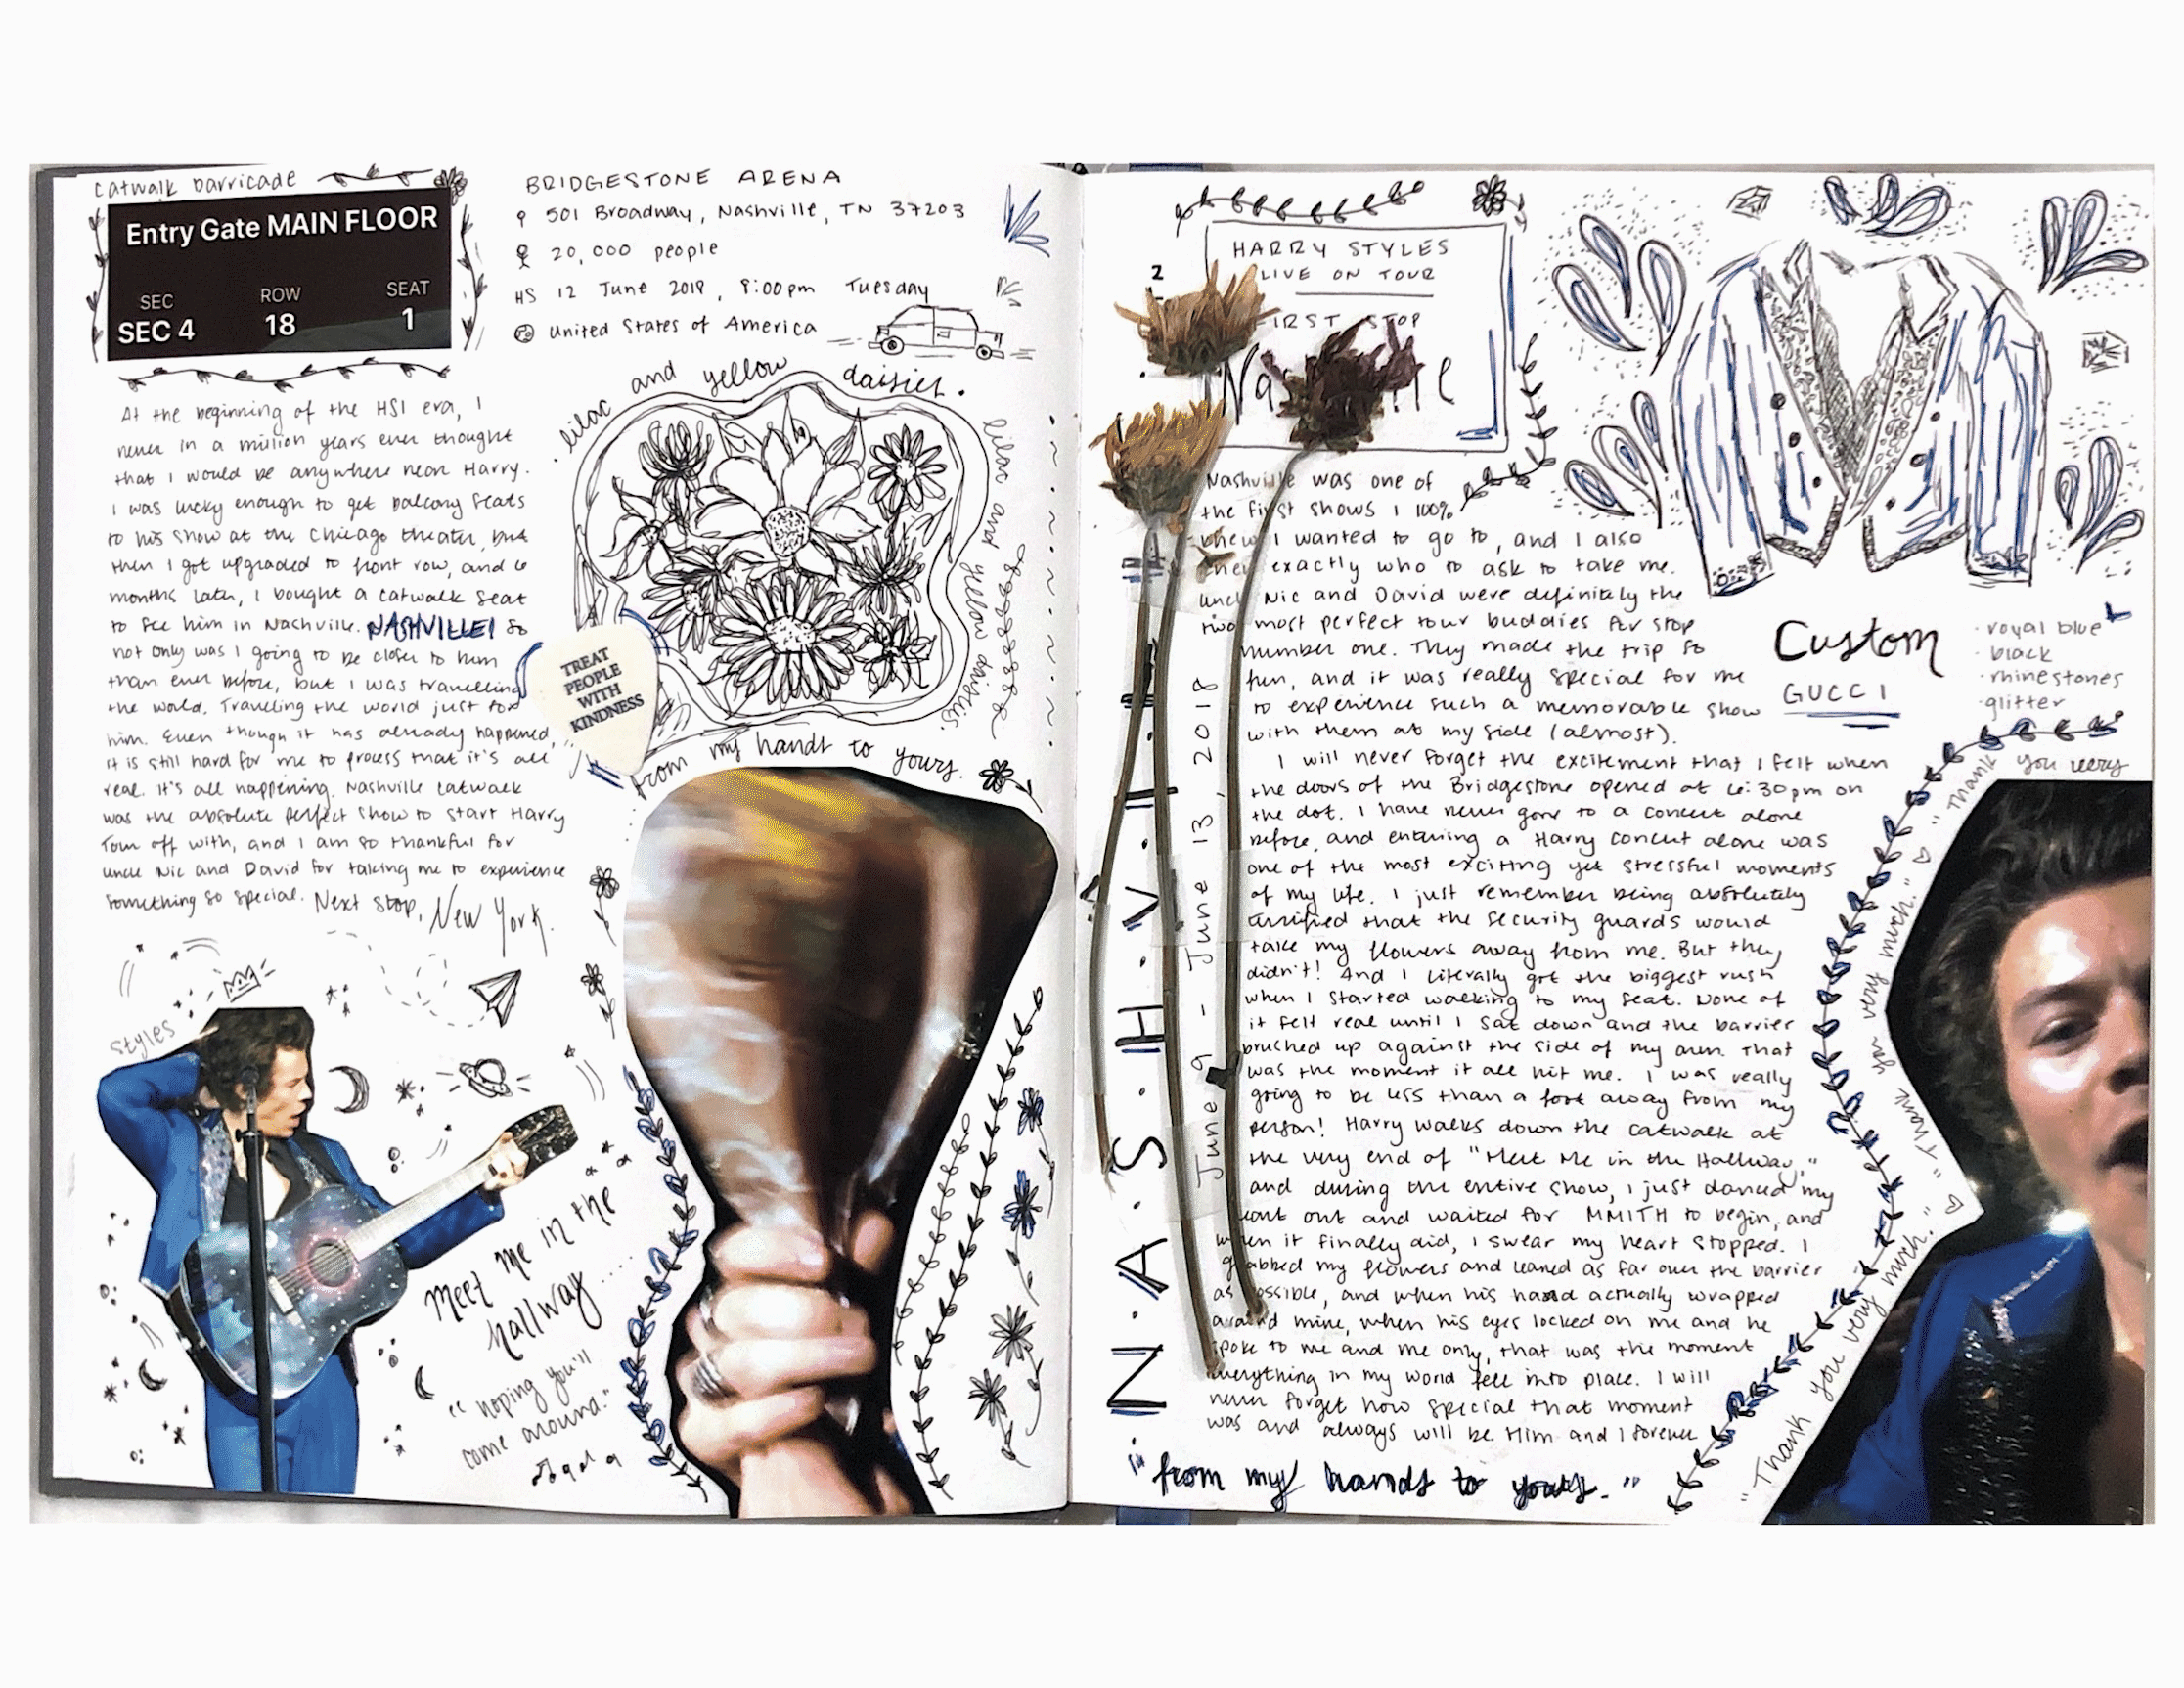 catwalk barricade
Entry Gate MAIN FLOOR
SEC ROW SEAT
SEC 4 18 1
At the beginning of the HS1 era, I
never in a million years ever thought
that I would be anywhere near Harry.
I was lucky enough to get balcony seats
to his show at the Chicago theater, but
then I got upgraded to front row, and 6
months later, I bought a catwalk seat
to see him in Nashville. NASHVILLE! So
not only was I going to be closer to him
than ever before, but I was travelling
the world. Traveling the world just for
him. Even though it has already happened,
it is still hard for me to process that it's all
real. It's all happening. Nashville catwalk
was the absolute perfect show to start Harry
Tour off with, and I am so thankful for
uncle Nic and David for taking me to experience
something so special. Next stop, New York.
styles
Meet me in the
hallway....
"hoping you'll
come around."
BRIDGESTONE ARENA
501 Broadway, Nashville, TN 37203
20,000 people
HS 12 June 2018, 8:00pm Tuesday
United States of America
lilac and yellow daisies.
lilac and yellow daisies.
TREAT
PEOPLE
WITH
KINDNESS
from my hands to yours.
N.A.S.H.V.I
June 9 - June 13, 2018
HARRY STYLES
LIVE ON TOUR
FIRST STOP
Nashville was one of
the first shows I 100%
knew I wanted to go to, and I also
knew exactly who to ask to take me.
uncle Nic and David were definitely the
two most perfect tour buddies for stop
number one. They made the trip so
fun, and it was really special for me
to experience such a memorable show
with them at my side (almost).
I will never forget the excitement that I felt when
the doors of the Bridgestone opened at 6:30pm on
the dot. I have never gone to a concert alone
before, and entering a Harry concert alone was
one of the most exciting yet stressful moments
of my life. I just remember being absolutely
terrified that the security guards would
take my flowers away from me. But they
didn't! And I literally got the biggest rush
when I started walking to my seat. None of
it felt real until I sat down and the barrier
brushed up against the side of my arm. That
was the moment it all hit me. I was really
going to be less than a foot away from my
person! Harry walks down the catwalk at
the very end of "Meet Me in the Hallway,"
and during the entire show, I just danced my
heart out and waited for MMITH to begin, and
when it finally did, I swear my heart stopped. I
grabbed my flowers and leaned as far over the barrier
as possible, and when his hand actually wrapped
around mine, when his eyes locked on me and he
spoke to me and me only, that was the moment
everything in my world fell into place. I will
never forget how special that moment
was and always will be Him and I forever
"from my hands to yours."
Custom
GUCCI
· royal blue
· black
· rhinestones
· glitter
"Thank you very much." "Thank you very much." "Thank you very much."